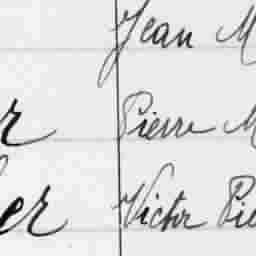 Jean M
r Pierre M
er Victor Pie